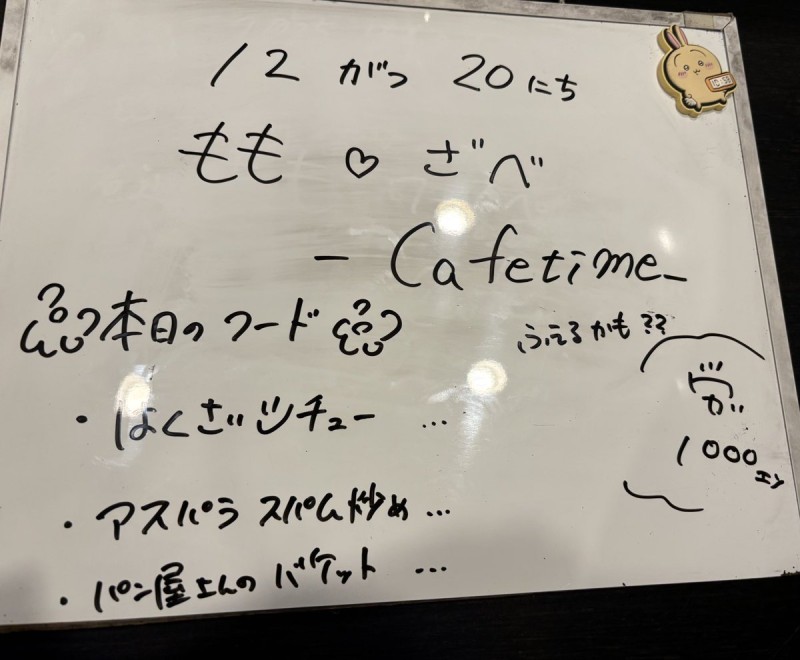 12 がつ 20 にち
もも ♡ ざべ
- Cafetime -
本日のフード
ふえるかも??
・はくさいシチュー …
・アスパラ スパム炒め …
・パン屋さんの バケット …
1000
エン